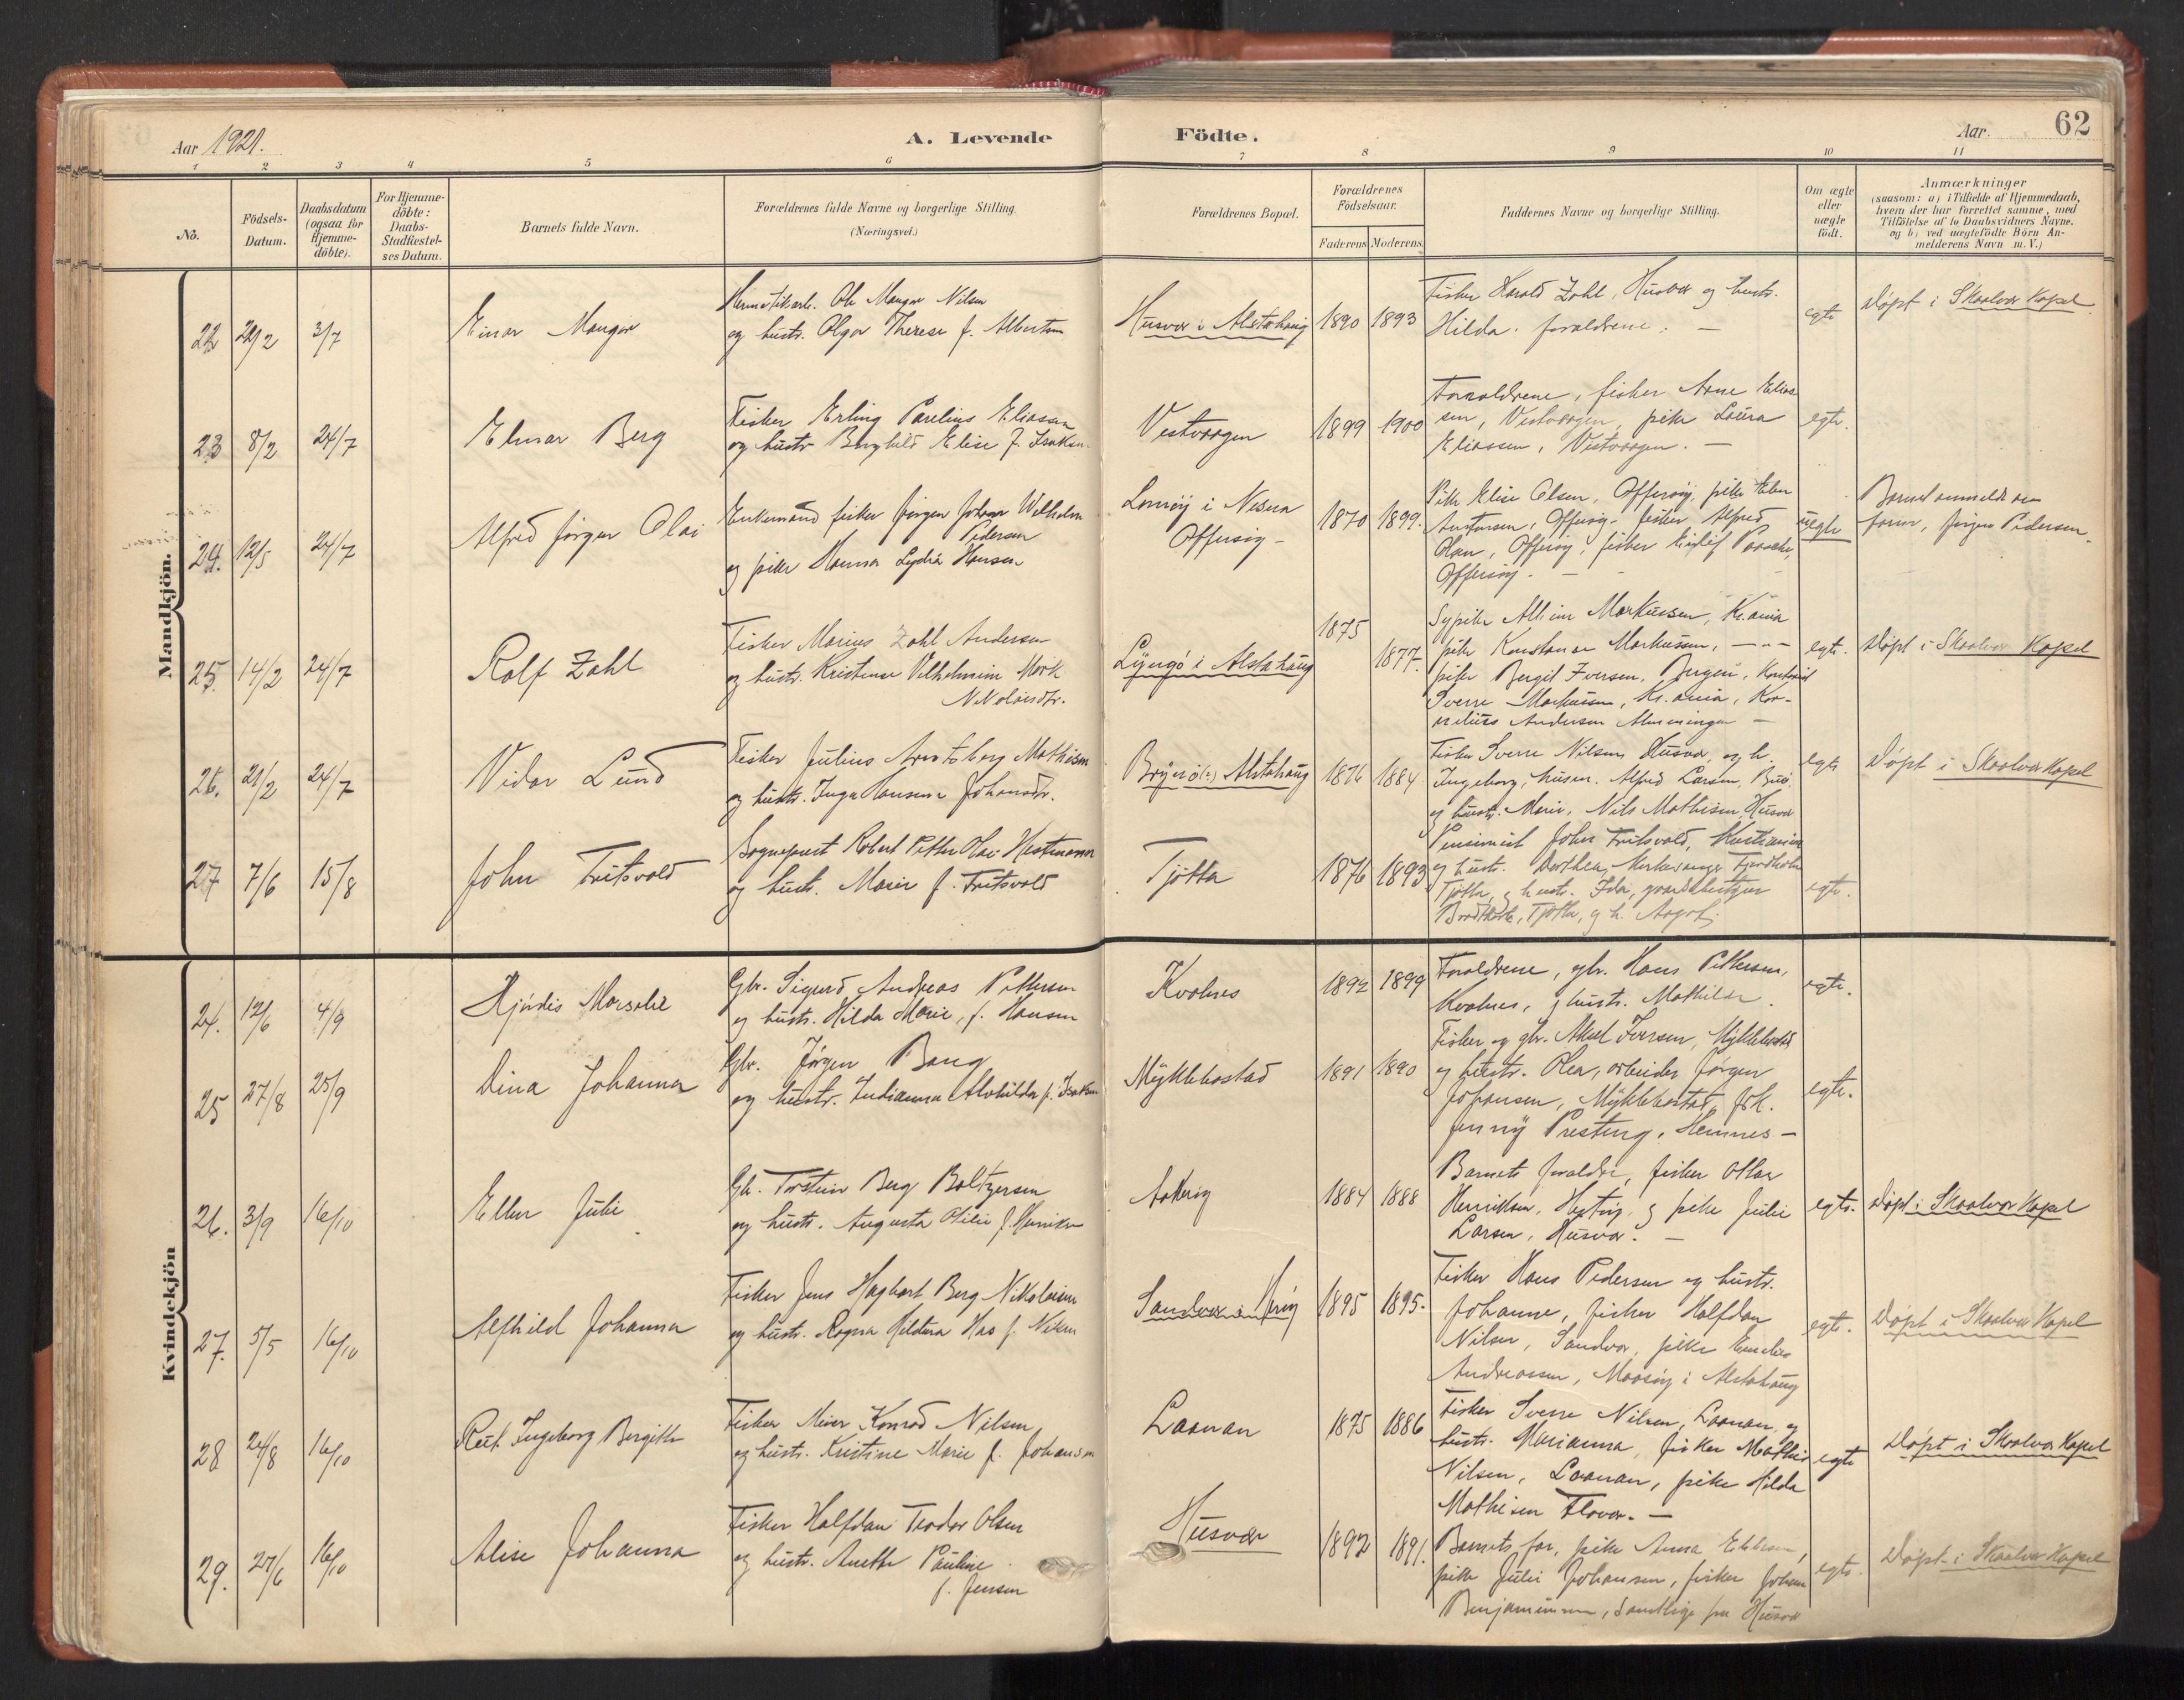 Aar 1921.
A. Levende
Födte.
Aar.
62
1 2 3 4 5 6 7 8 9 10 11
No.
Födsels-Datum.
Daabsdatum (ogsaa for Hjemme-döbte).
For Hjemme-döbte: Daabs-Stadfæstel-ses Datum.
Barnets fulde Navn.
Forældrenes fulde Navne og borgerlige Stilling
(Næringsvei.)
Forældrenes Bopæl.
Forældrenes Födselsaar.
Faderens Moderens
Faddernes Navne og borgerlige Stilling.
Om ægte eller uægte födt.
Anmærkninger
(saasom: a) i Tilfælde af Hjemmedaab,
hvem der har forrettet samme, med
Tilföielse af to Daabsvidners Navne.
og b) ved uægtefödte Börn An-
melderens Navn m. V.)
Mandkjön.
22 22/2 3/7
Einar Mangor
Ole Mangor Nilsen
og hustr. Olga Therese f. Albertsen
Husvær i Alstahaug
1890 1893
Fisker Harald Zahl, Husvær og hustr.
Hilda. forældrene. —
egte
Döpt i Skaalvær Kapel
23 8/2 24/7
Elmar Berg
Fisker Erling Parelius Eliassen
og hustr. Borghild Elise f. Isaksen
Vestvaagen
1899 1900
Forældrene, fisker Arne Elias-
sen, Vestvaagen, pike Laura
Eliassen, Vestvaagen. —
egte.
24. 12/5 24/7
Alfred Jörgen Olai
Enkemand fisker Jörgen Johan Wilhelm
Pedersen
og pike Hanna Lydia Hansen
i Nesna
Offersöy —
1870 1899.
Pike Elise Olsen, Offersöy, pike
Offersöy. fisker Alfred
Olsen, Offersöy, fisker
Offersöy. —
uegte
Barnet anmeldt av
faren, Jörgen Pedersen.
25. 14/2 24/7
Rolf Zahl
Fisker Marius Zahl Andersen
og hustr. Kristine Vilhelmine Mörk
Nikolaisdtr.
Lyngö i Alstahaug
1875 1877.
Sypike Markussen, Kr.ania
pike Konstanse Markussen, —"—
pike Bergit Iversen, Bergen,
Sverre Markussen, Kr.ania, Kor-
nelius Andersen Almenningen —
egte.
Döpt i Skaalvær Kapel
26. 21/2 24/7
Vidar Lund
Fisker Julius Arntsberg Mathisen
og hustr. Inga Hansine Johansdtr.
Alstahaug
1876 1884
Fisker Sverre Nilsen Husvær, og h.
Ingeborg, Alfred Larsen,
og hustr. Marie, Nils Mathisen, Husvær
egte
Döpt i Skaalvær Kapel
27 7/6 15/8
John Fritsvold
Sogneprest Robert Petter Olai Hestmann
og hustr. Marie f. Fritsvold
Tjötta
1876 1893
Pensionist John Fritsvold, Kristiania
og hustr. Dorthea, kirkesanger Fjordholm
Tjötta, og hustr. Ida, gaardbestyrer
Tjötta, og h. Aagot.
egte.
Kvindekjön
24. 12/6 4/9
Hjördis Marselie
Gbr. Sigurd Andreas Pettersen
og hustr. Hilda Marie, f. Hansen
Kvalnes
1892 1899
Forældrene, gbr. Hans Pettersen,
Kvalnes, og hustr. Mathilde.
egte.
25 27/8 25/9
Dina Johanna
Gbr. Jörgen Bang
og hustr. Indianna Alvhilda f. Isaksen
Myklebostad
1891 1890
Fisker og gbr. Aksel Iversen, Myklebostad
og hustr. Olea, arbeider Jörgen
Johansen, Myklebostad, frk.
Jenny Presteng, Hemnes —
egte.
26. 3/9 16/10
Ellen Julie
Gbr. Torstein Berg Baltzersen
og hustr. Augusta Otilie f. Henriksen
1884 1888
Barnets forældre, fisker Ottar
Henriksen, og pike Julie
Larsen, Husvær. —
egte.
Döpt i Skaalvær Kapel
27. 5/5 16/10
Alfhild Johanna
Fisker Jens Hagbart Berg Nikolaisen
og hustr. Ragna Hildina f. Nilsen
Sandvær i Heröy
1895 1895.
Fisker Hans Pedersen og hustr.
Johanne, fisker Halfdan
Nilsen, Sandvær, pike Emelie
Andreassen, Maasöy i Alstahaug
egte.
Döpt i Skaalvær Kapel
28 24/8 16/10
Rut Ingeborg Bergitte
Fisker Meier Konrad Nilsen
og hustr. Kristine Marie f. Johansen
Laanan
1875 1886
Fisker Sverre Nilsen, Laanan, og
hustr. Marianna, fisker Mathis
Nilsen, Laanan, pike Hilda
Mathisen Flovær. —
egte
Döpt i Skaalvær Kapel
29. 27/6 16/10
Alise Johanna
Fisker Halfdan Teodor Olsen
og hustr. Anette Pauline
f. Jensen
Husvær
1892 1891.
Barnets far, pike Anna
pike Julie Johansen, fisker Johan
Benjaminsen, samtlige fra Husvær
egte.
Döpt i Skaalvær Kapel